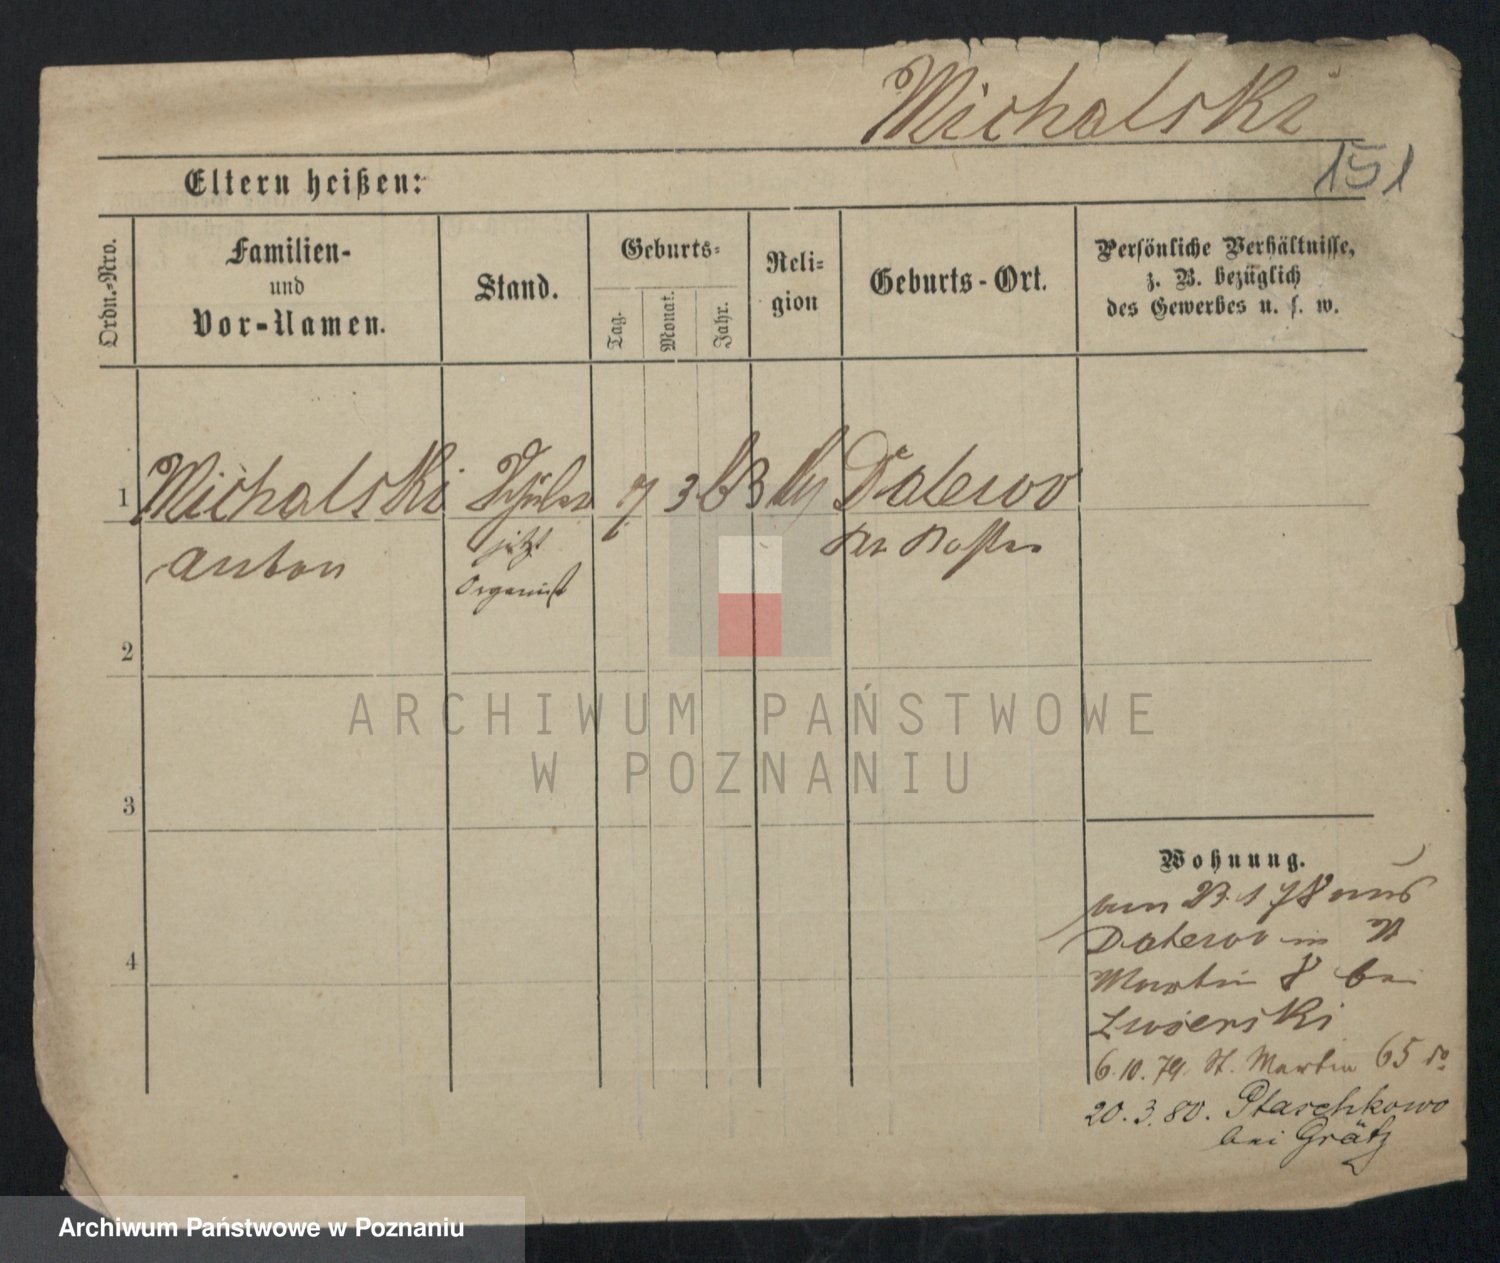 Michalski
151
Eltern heißen:
Ordn.-Nro.
Familien-
und
Vor-Namen.
Stand.
Geburts-
Tag.
Monat.
Jahr.
Reli-
gion
Geburts-Ort.
Persönliche Verhältnisse,
z. B. bezüglich
des Gewerbes u. s. w.
1 Michalski Schüler 7 3 63 Dalewo
Anton jetzt Kr Kosten
Organist
2
3
4
Wohnung.
am 23.1 78 aus
Dalewo in St
Martin 8 bei
Zwierski
6.10.79. St. Martin 65 do
20.3.80. Ptaschkowo
bei Grätz
ARCHIWUM PAŃSTWOWE
W POZNANIU
Archiwum Państwowe w Poznaniu